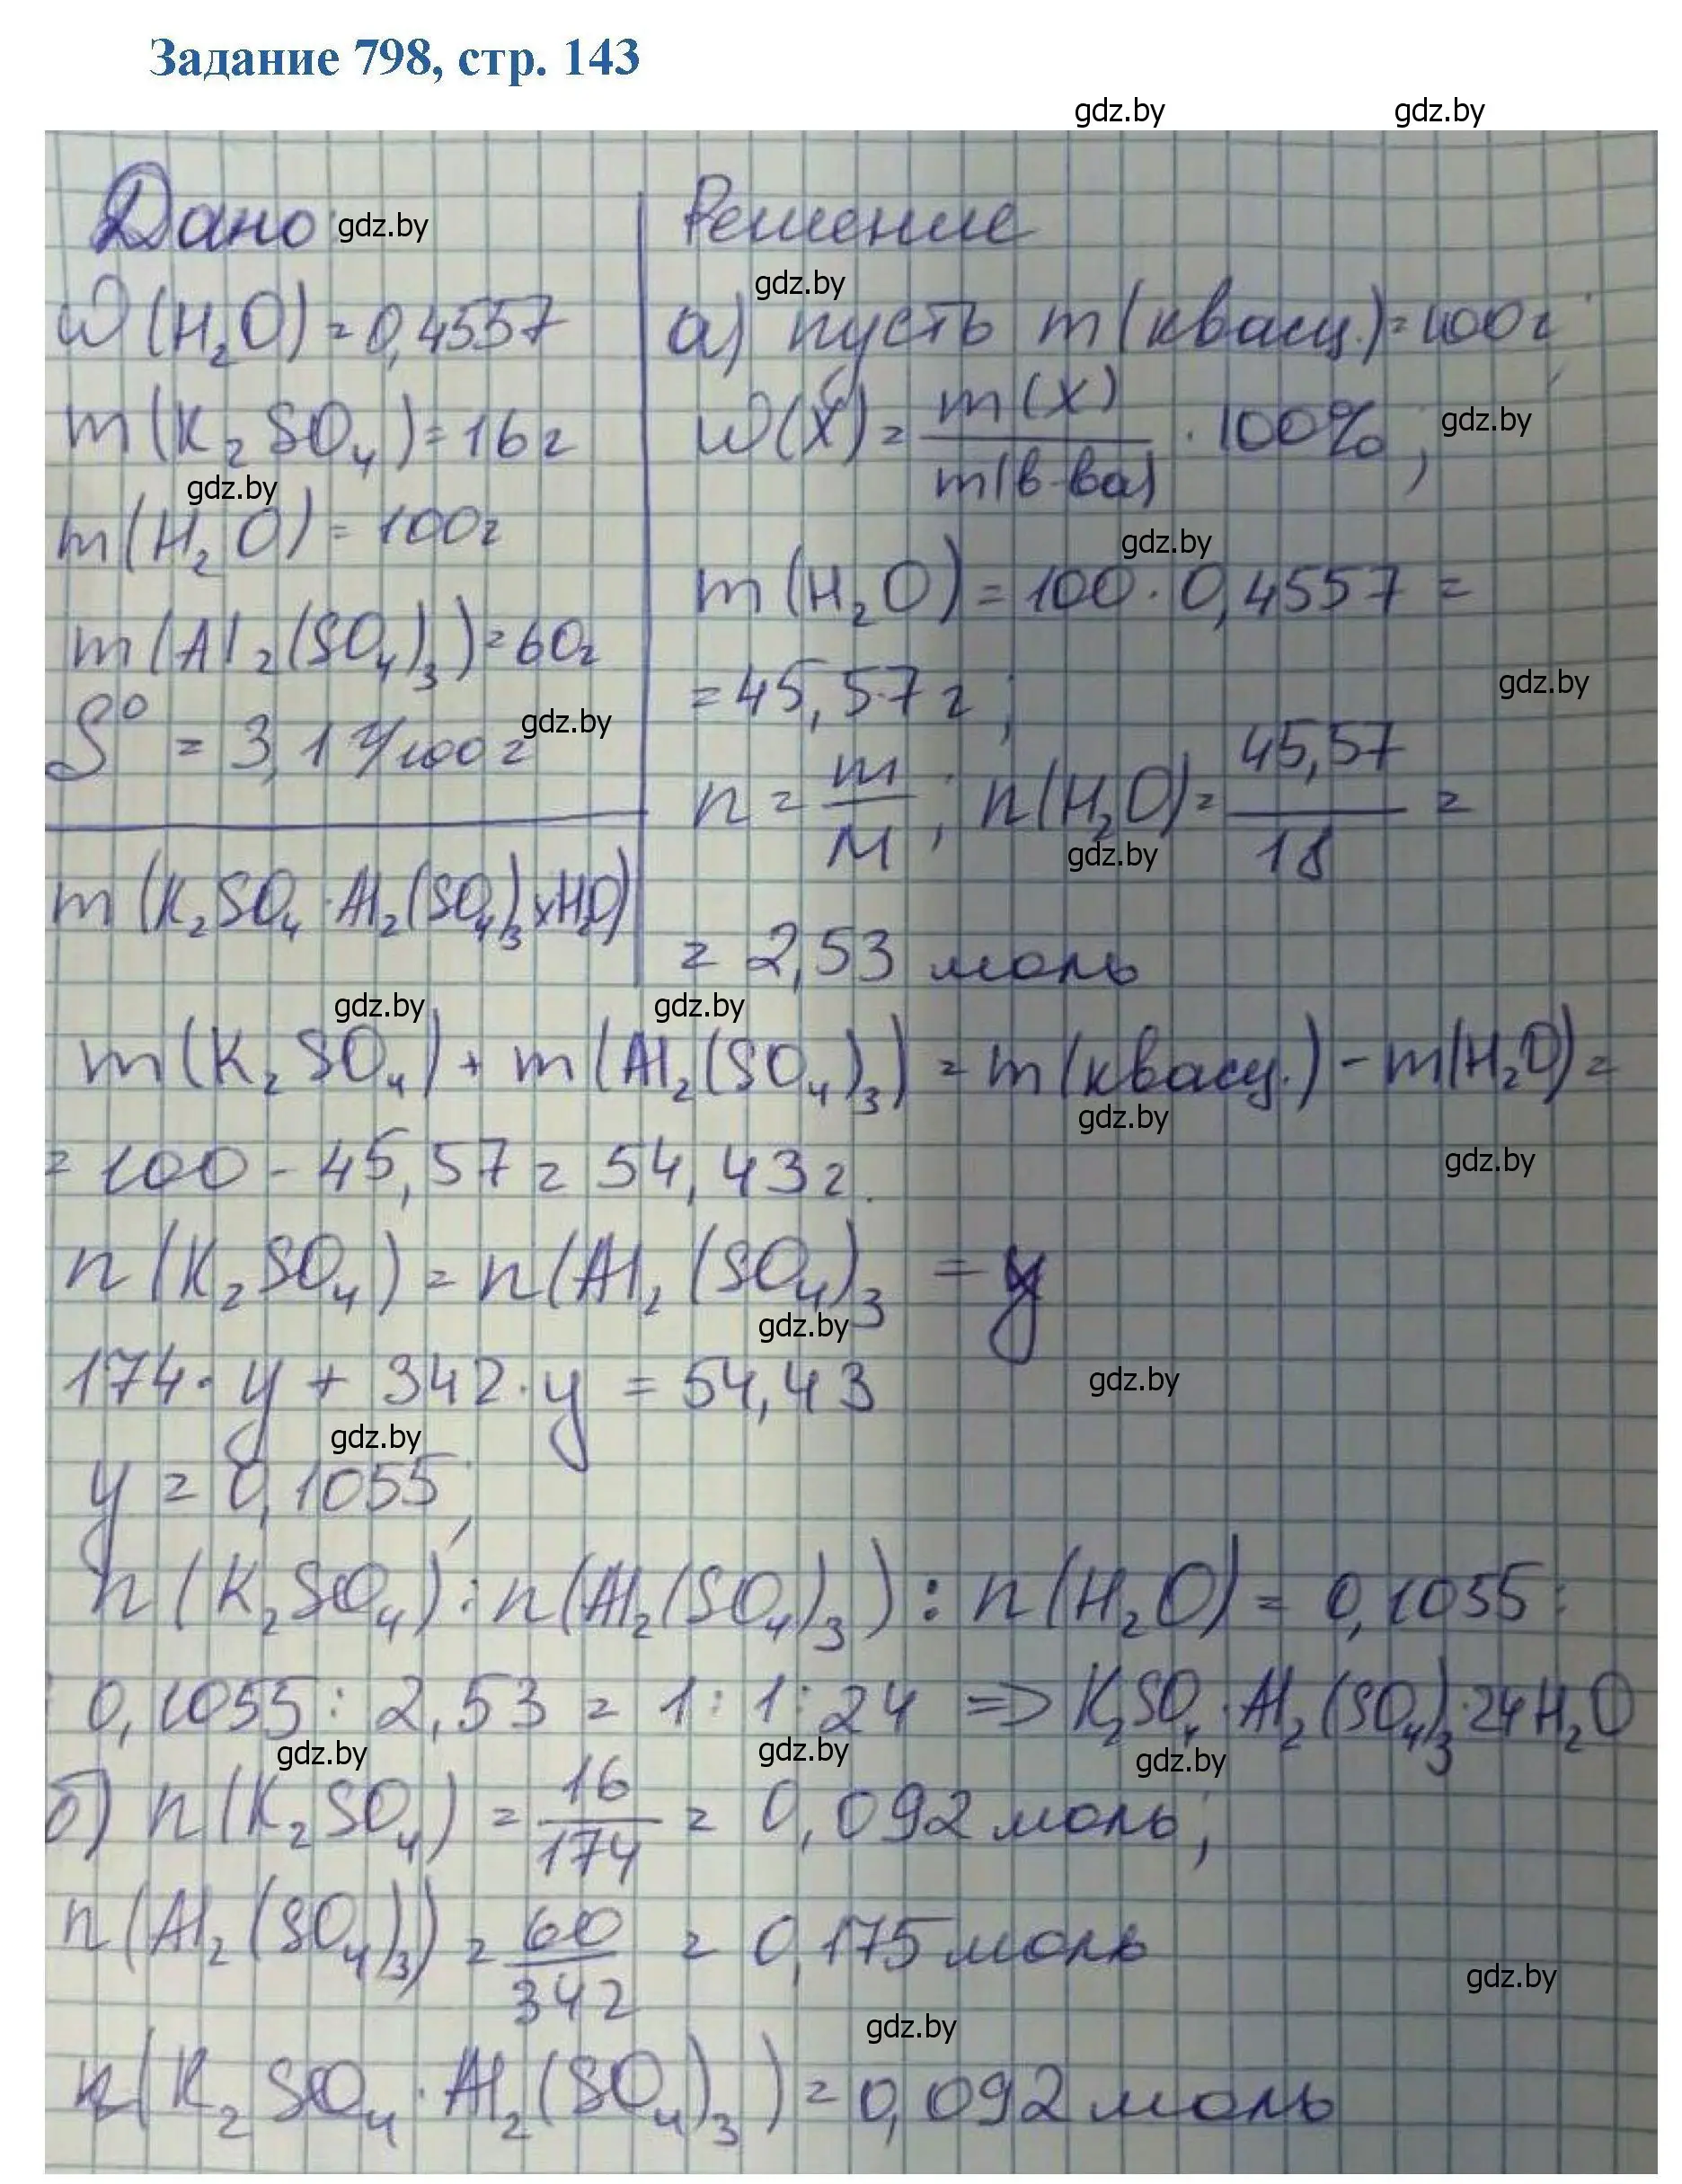 Задание 798, стр. 143
gdz.by gdz.by
Дано: gdz.by
W(H₂O) = 0,4557
m(K₂SO₄) = 16г
gdz.by
m(H₂O) = 100г
m(Al₂(SO₄)₃) = 60г
S⁰ = 3,1 г/100г gdz.by
m(K₂SO₄·Al₂(SO₄)₃·xH₂O)
Решение
gdz.by
а) пусть m(квасц.) = 100г;
W(X) = m(X)/m(в-ва) · 100%; gdz.by
gdz.by
m(H₂O) = 100 · 0,4557 =
= 45,57 г; gdz.by
n = m/M; n(H₂O) = 45,57/18 =
gdz.by
= 2,53 моль
gdz.by gdz.by
m(K₂SO₄) + m(Al₂(SO₄)₃) = m(квасц.) - m(H₂O) =
gdz.by
= 100 - 45,57 = 54,43г. gdz.by
n(K₂SO₄) = n(Al₂(SO₄)₃ = y
gdz.by
174·y + 342·y = 54,43 gdz.by
gdz.by
y = 0,1055;
n(K₂SO₄) : n(Al₂(SO₄)₃) : n(H₂O) = 0,1055 :
: 0,1055 : 2,53 = 1 : 1 : 24 => K₂SO₄·Al₂(SO₄)₃·24H₂O
gdz.by gdz.by gdz.by
б) n(K₂SO₄) = 16/174 = 0,092 моль;
n(Al₂(SO₄)₃) = 60/342 = 0,175 моль
gdz.by
gdz.by
n(K₂SO₄·Al₂(SO₄)₃) = 0,092 моль